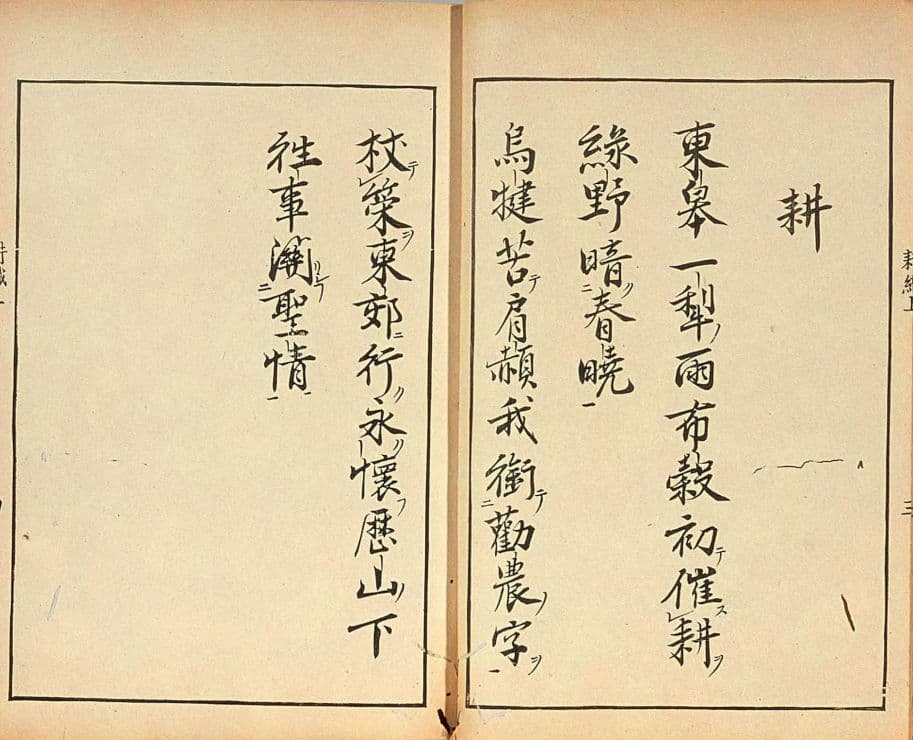 耕
東皋一犁雨布穀初催耕
綠野暗春曉
烏犍苦肩赬我銜勸農字
杖築東郊行永懷歴山下
往事関聖情